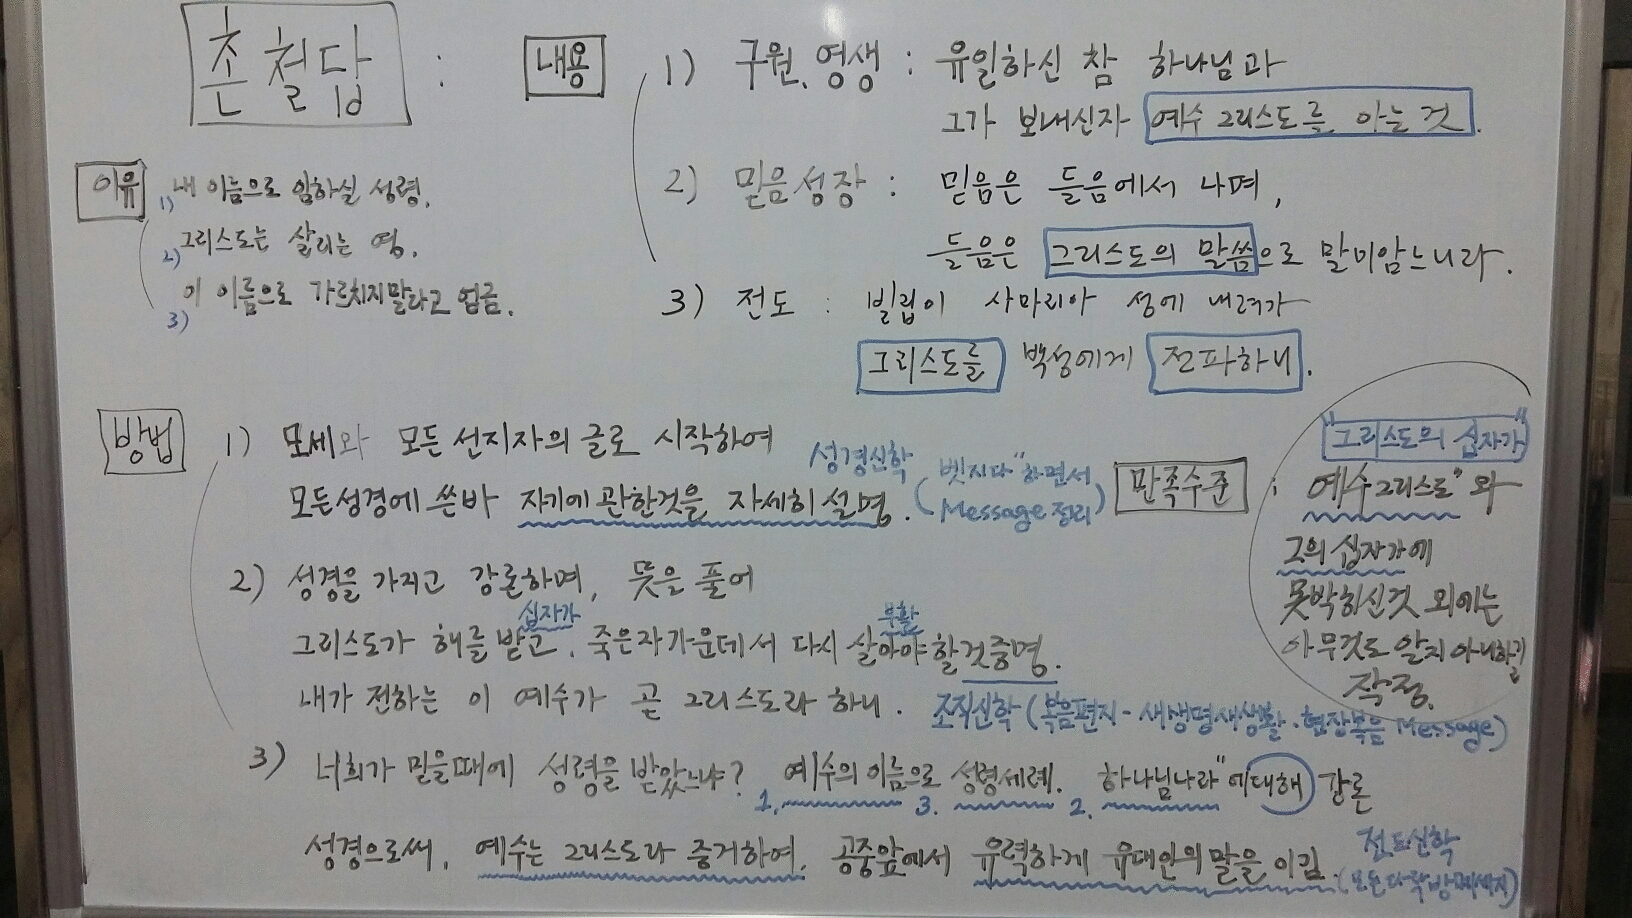 춘천답 :
내용
1) 구원, 영생 : 유일하신 참 하나님과
그가 보내신자 예수 그리스도를 아는 것.
2) 믿음성장 : 믿음은 들음에서 나며,
들음은 그리스도의 말씀으로 말미암느니라.
3) 전도 : 빌립이 사마리아 성에 내려가
그리스도를 백성에게 전파하니.
이유
1) 내 이름으로 임하실 성령.
2) 그리스도는 살리는 영.
3) 이 이름으로 가르치지말라고 엄금.
방법
1) 모세와 모든 선지자의 글로 시작하여
모든성경에 쓴바 자기에 관한것을 자세히 설명.
성경신학
(벗지다"하면서
Message 정리)
2) 성경을 가지고 강론하며, 뜻을 풀어
십자가 부활
그리스도가 해를 받고, 죽은자 가운데서 다시 살아야 할것증명.
내가 전하는 이 예수가 곧 그리스도라 하니.
조직신학 (복음편지 - 새생명새생활 · 현장복음 Message)
3) 너희가 믿을때에 성령을 받았느냐? 예수의 이름으로 성령세례. 하나님나라"에대해 강론
1. 3. 2.
성경으로써, 예수는 그리스도라 증거하여, 공중앞에서 유력하게 유대인의 말을 이김.
전도신학
(모든다락방메세지)
만족수준 :
"그리스도의 십자가"
예수그리스도"와
그의 십자가에
못박히신것 외에는
아무것도 알지 아니하길
작정.